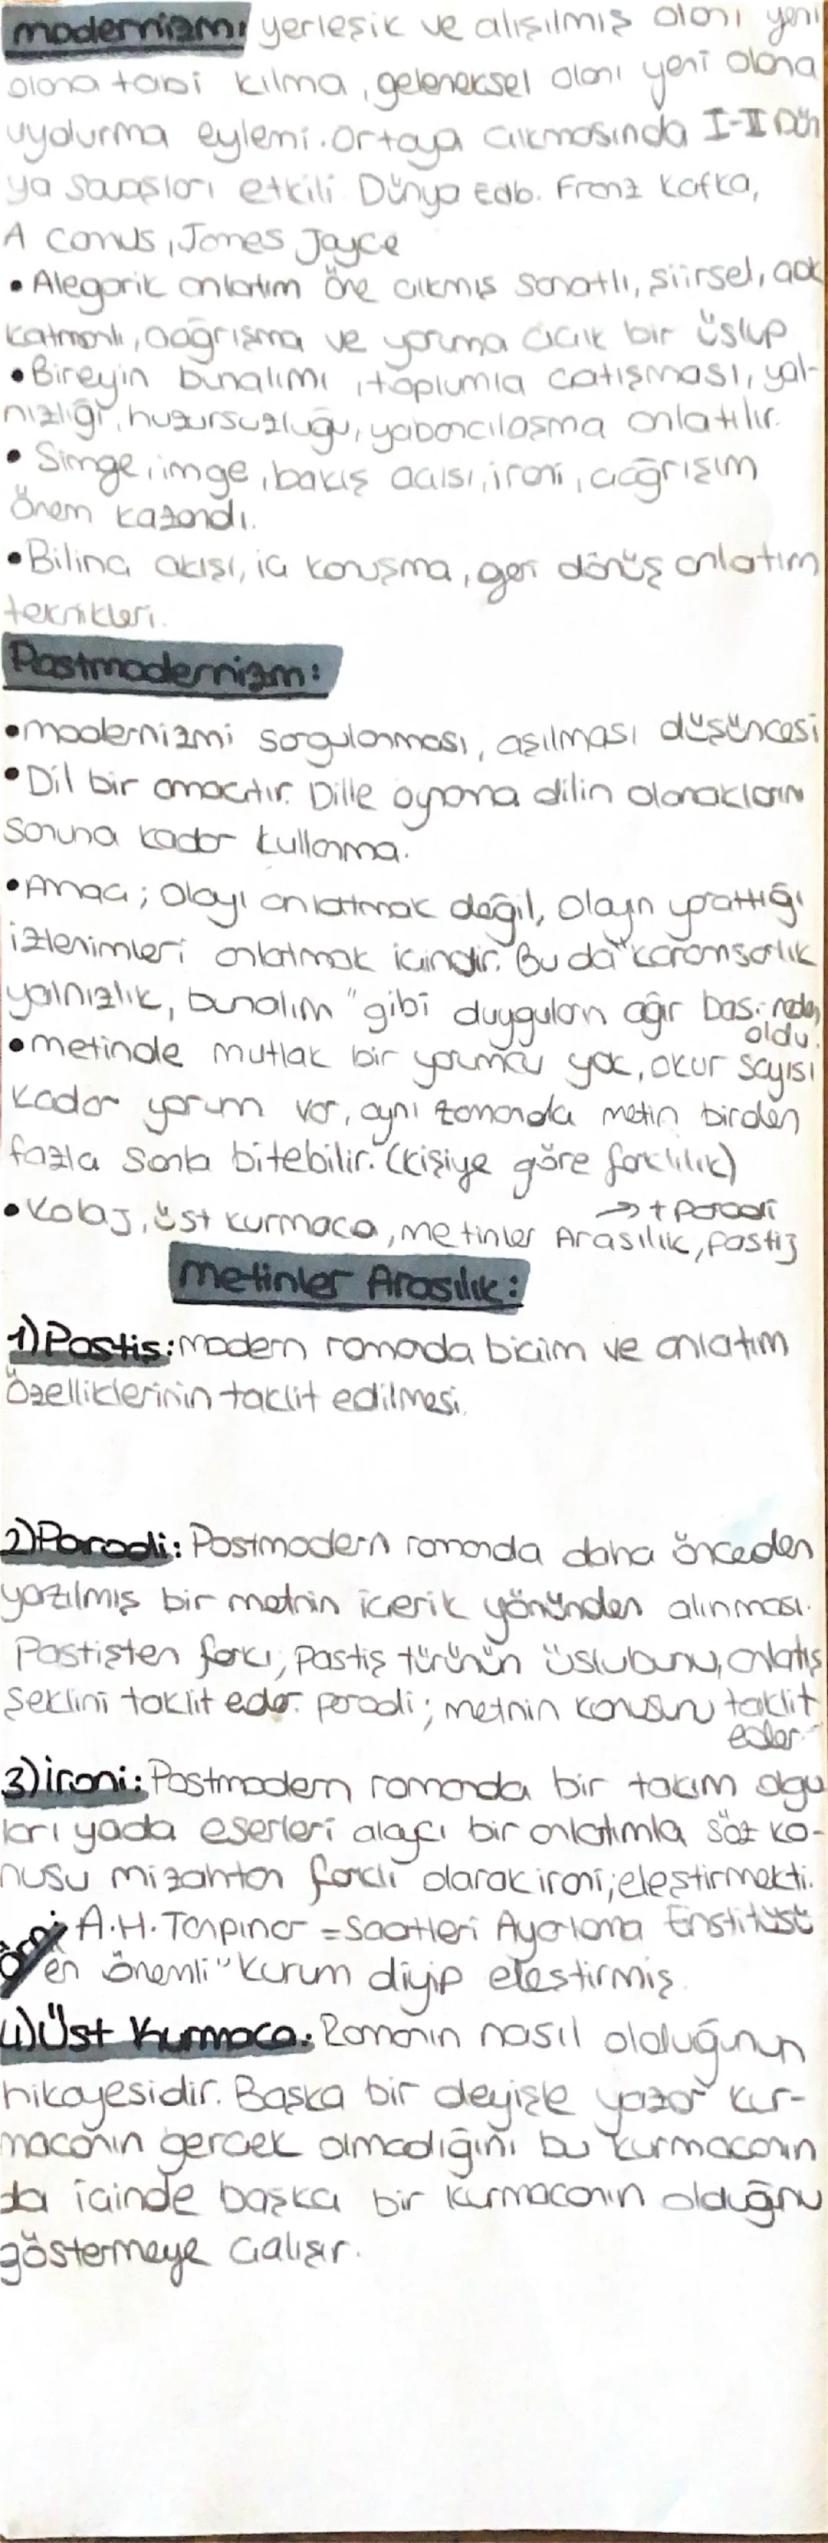 modernizm: yerleşik ve alışılmış olanı yeni
olana tabi kılma, geleneksel olanı yeni olana
uydurma eylemi. Ortaya çıkmasında I-II Dün
ya savaşları etkili Dünya Edb. Franz Kafka,
A Camus, James Joyce
• Alegorik anlatım öne çıkmış sanatlı, şiirsel, çok
katmanlı, çağrışma ve yoruma açık bir üslup
• Bireyin bunalımı, toplumla çatışması, yal-
nızlığı, huzursuzluğu, yabancılaşma anlatılır.
• Simge, imge, bakış açısı, ironi, çağrışım
önem kazandı.
• Bilinç akışı, iç konuşma, geri dönüş anlatım
teknikleri.
Postmodernizm:
• modernizmi sorgulanması, aşılması düşüncesi
• Dil bir amaçtır. Dille oynama dilin olanaklarını
sonuna kadar kullanma.
• Amaç; Olayı anlatmak değil, Olayın yarattığı
izlenimleri anlatmak içindir. Bu da "karamsarlık
yalnızlık, bunalım" gibi duyguların ağır bas. neden
oldu.
• metinde mutlak bir yorumcu yok, okur sayısı
kadar yorum var, aynı zamanda metin birden
fazla sonla bitebilir. (kişiye göre farklılık)
→ + parodi
• Kolaj, üst kurmaca, metinler Arasılık, pastiş
metinler Arasılık:
1) Pastiş: modern romanda biçim ve anlatım
özelliklerinin taklit edilmesi.
2) Parodi: Postmodern romanda daha önceden
yazılmış bir metnin içerik yönünden alınması.
Pastişten farkı, pastiş türünün üslubunu, anlatış
şeklini taklit eder. parodi; metnin konusunu taklit
eder.
3) ironi: Postmodern romanda bir takım olgu
ları yada eserleri alaycı bir anlatımla söz ko-
nusu mizahtan farklı olarak ironi; eleştirmekti.
Örn: A.H. Tanpınar = Saatleri Ayarlama Enstitüsü
en önemli "kurum diyip eleştirmiş.
4) Üst Kurmaca: Romanın nasıl olduğunun
hikayesidir. Başka bir deyişle yazar kur-
macanın gerçek olmadığını bu kurmacanın
da içinde başka bir kurmacanın olduğnu
göstermeye çalışır.